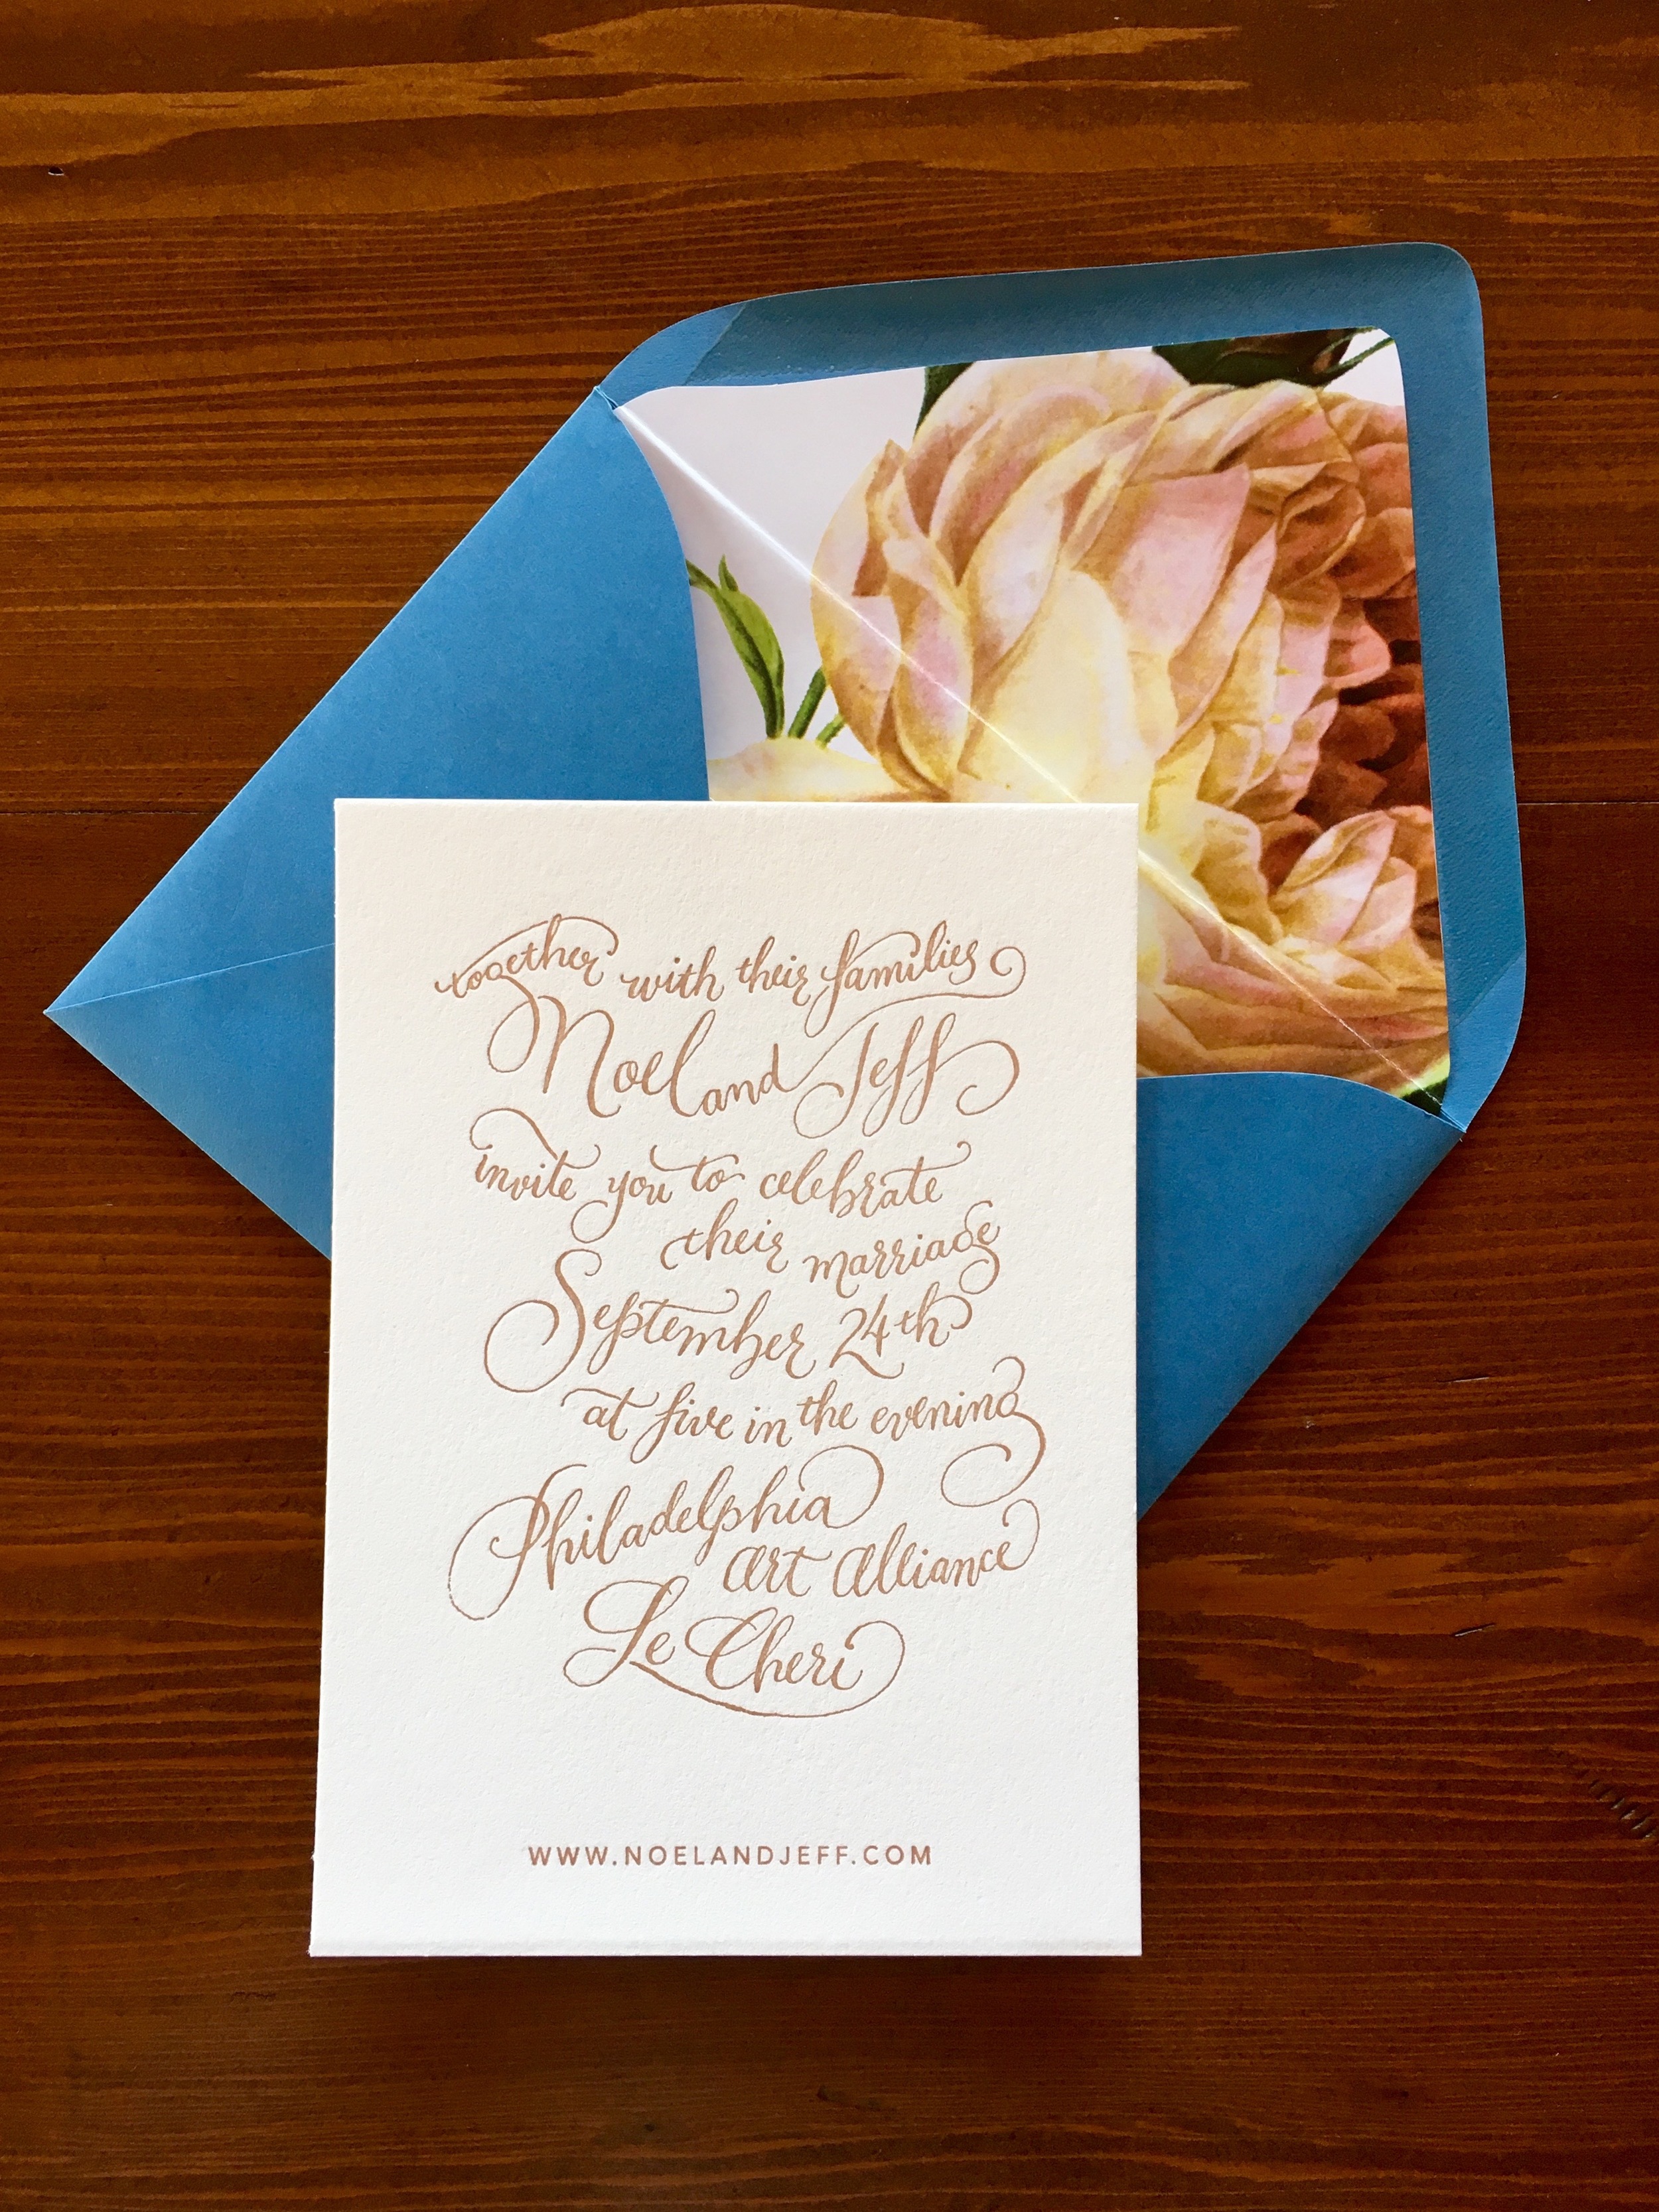 together with their families
Noel and Jeff
invite you to celebrate
their marriage
September 24th
at five in the evening
Philadelphia
Art Alliance
Le Cheri
WWW.NOELANDJEFF.COM